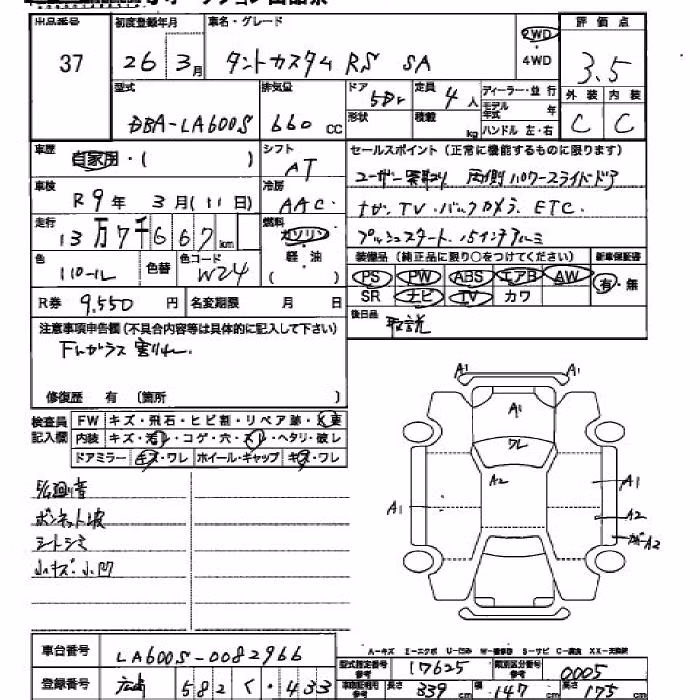 出品番号 初度登録年月 車名・グレード 評価点
37 26年 3月 タントカスタム RS SA 2WD・4WD 3.5
型式 排気量 ドア 定員 ディーラー・並行 外装 内装
DBA-LA600S 660 CC 5Dr 4人 モデル年式 年 C C
形状 積載 kg ハンドル 左・右
車歴 自家用・( ) シフト AT セールスポイント(正常に機能するものに限ります)
車検 R9年 3月(11日) 冷房 AAC ユーザー買取り 両側パワースライドドア
走行 13万7千667km 燃料 ガソリン ナビ.TV.バックカメラ.ETC.
色 パール 色替 色コード W24 軽・油 ( ) プッシュスタート.15インチアルミ
装備品(純正品に限り○をつけてください) 新車保証書
R券 9,550円 名変期限 月 日 PS PW ABS エアB AW 有・無
SR ナビ TV カワ
注意事項申告欄(不具合内容等は具体的に記入して下さい) 後日品 取説
Fガラス 割れ.
修復歴 有 (箇所 )
検査員記入欄 FW キズ・飛石・ヒビ割・リペア跡・X要
内装 キズ・汚レ・コゲ・穴・スレ・ヘタリ・破レ
ドアミラー キズ・ワレ ホイール・キャップ キズ・ワレ
ボンネット波
シートシミ
小キズ.小凹
A1 A1
A1
ワレ
A2
A1 A1
A2
A2
A-キズ E-エクボ U-凹み W-補修跡 S-サビ C-腐食 XX-交換済
車台番号 LA600S-0082966 型式指定番号参考 17625 類別区分番号参考 0005
登録番号 広島 582 く・433 長さ 339cm 幅 147cm 高さ 175cm